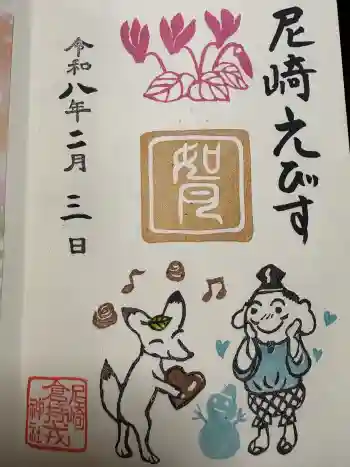 尼崎えびす
如月
令和八年二月三日
尼崎
神社